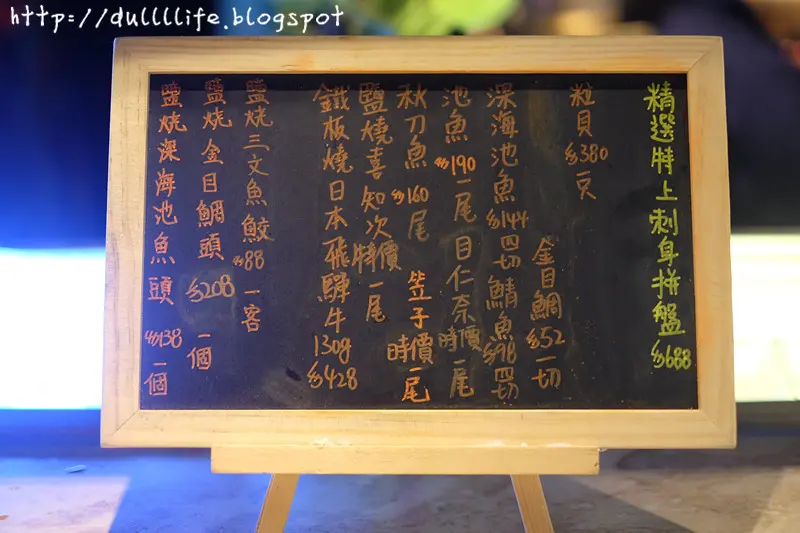 http://dullllife.blogspot
精選特上刺身拼盤 $688
粒貝 $380 一只
金目鯛 $52 一切
深海池魚 $144 四切 鯖魚 $98 四切
池魚 $190 一尾 目仁奈 時價 一尾
秋刀魚 $160 尾 笠子 時價 一尾
鹽燒喜知次 特價 一尾
鐵板燒日本飛驒牛 130g $428
鹽燒三文魚鮫 $88 一客
鹽燒金目鯛頭 $208 一個
鹽燒深海池魚頭 $138 一個